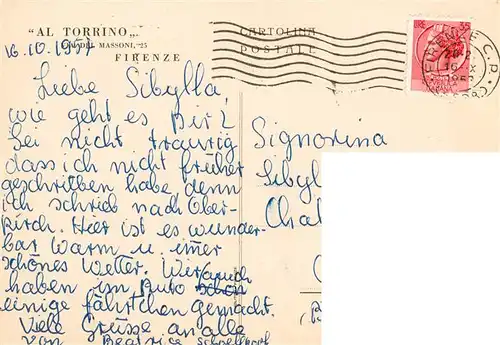 "AL TORRINO„
MASSONI, 25
FIRENZE
CARTOLINA
POSTALE
16.10.1957
Liebe Sibylla,
wie geht es Dir?
Sei nicht traurig
dass ich nicht früher
geschriben habe denn
ich schrieb nach Ober-
kirch. Hier ist es wunder-
bar warm u. imer
schönes Wetter. Wir
haben im Auto schon
einige fährtchen gemacht.
Viele Grüsse an alle
von Beatrice
Signorina
Sibyl